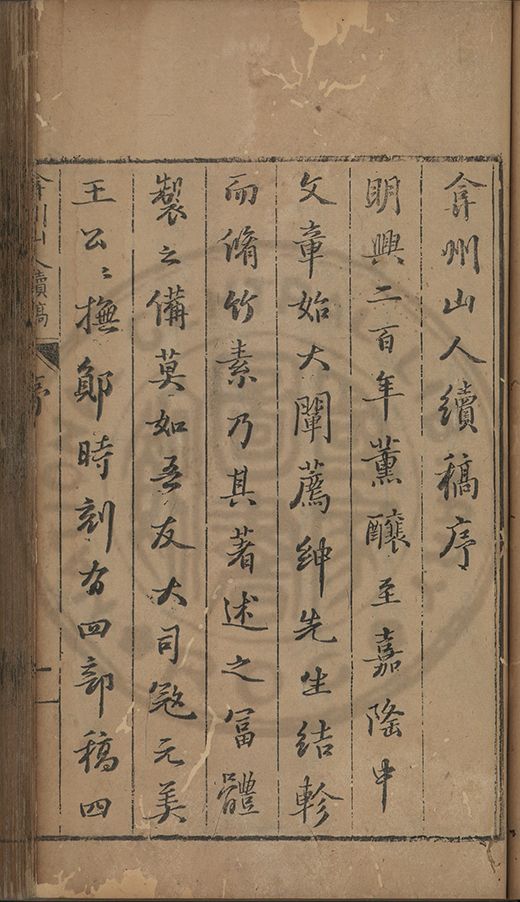 弇州山人續稿序
明興二百年薰醸至嘉隆中
文章始大闡薦紳先生結軫
而脩竹素乃其著述之冨體
製之備莫如吾友大司冦元美
王公〻撫鄖時刻有四部稿四
弇州山人續稿 序 一